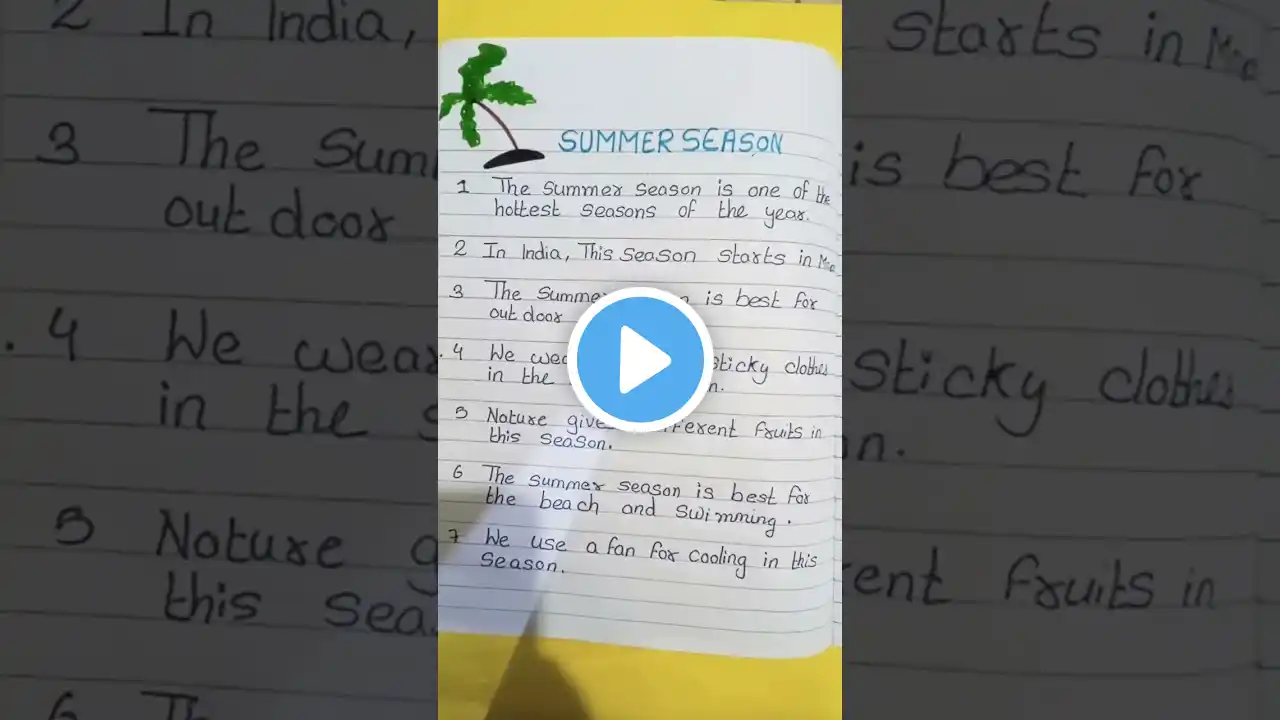 SUMMER SEASON
1 The summer season is one of the
hottest seasons of the year.
2 In India, This season starts in
3 The Summer is best for
out door
4 We sticky clothes
in the
5 Nature different fruits in
this season.
6 The summer season is best for
the beach and swimming.
7 We use a fan for cooling in this
season.